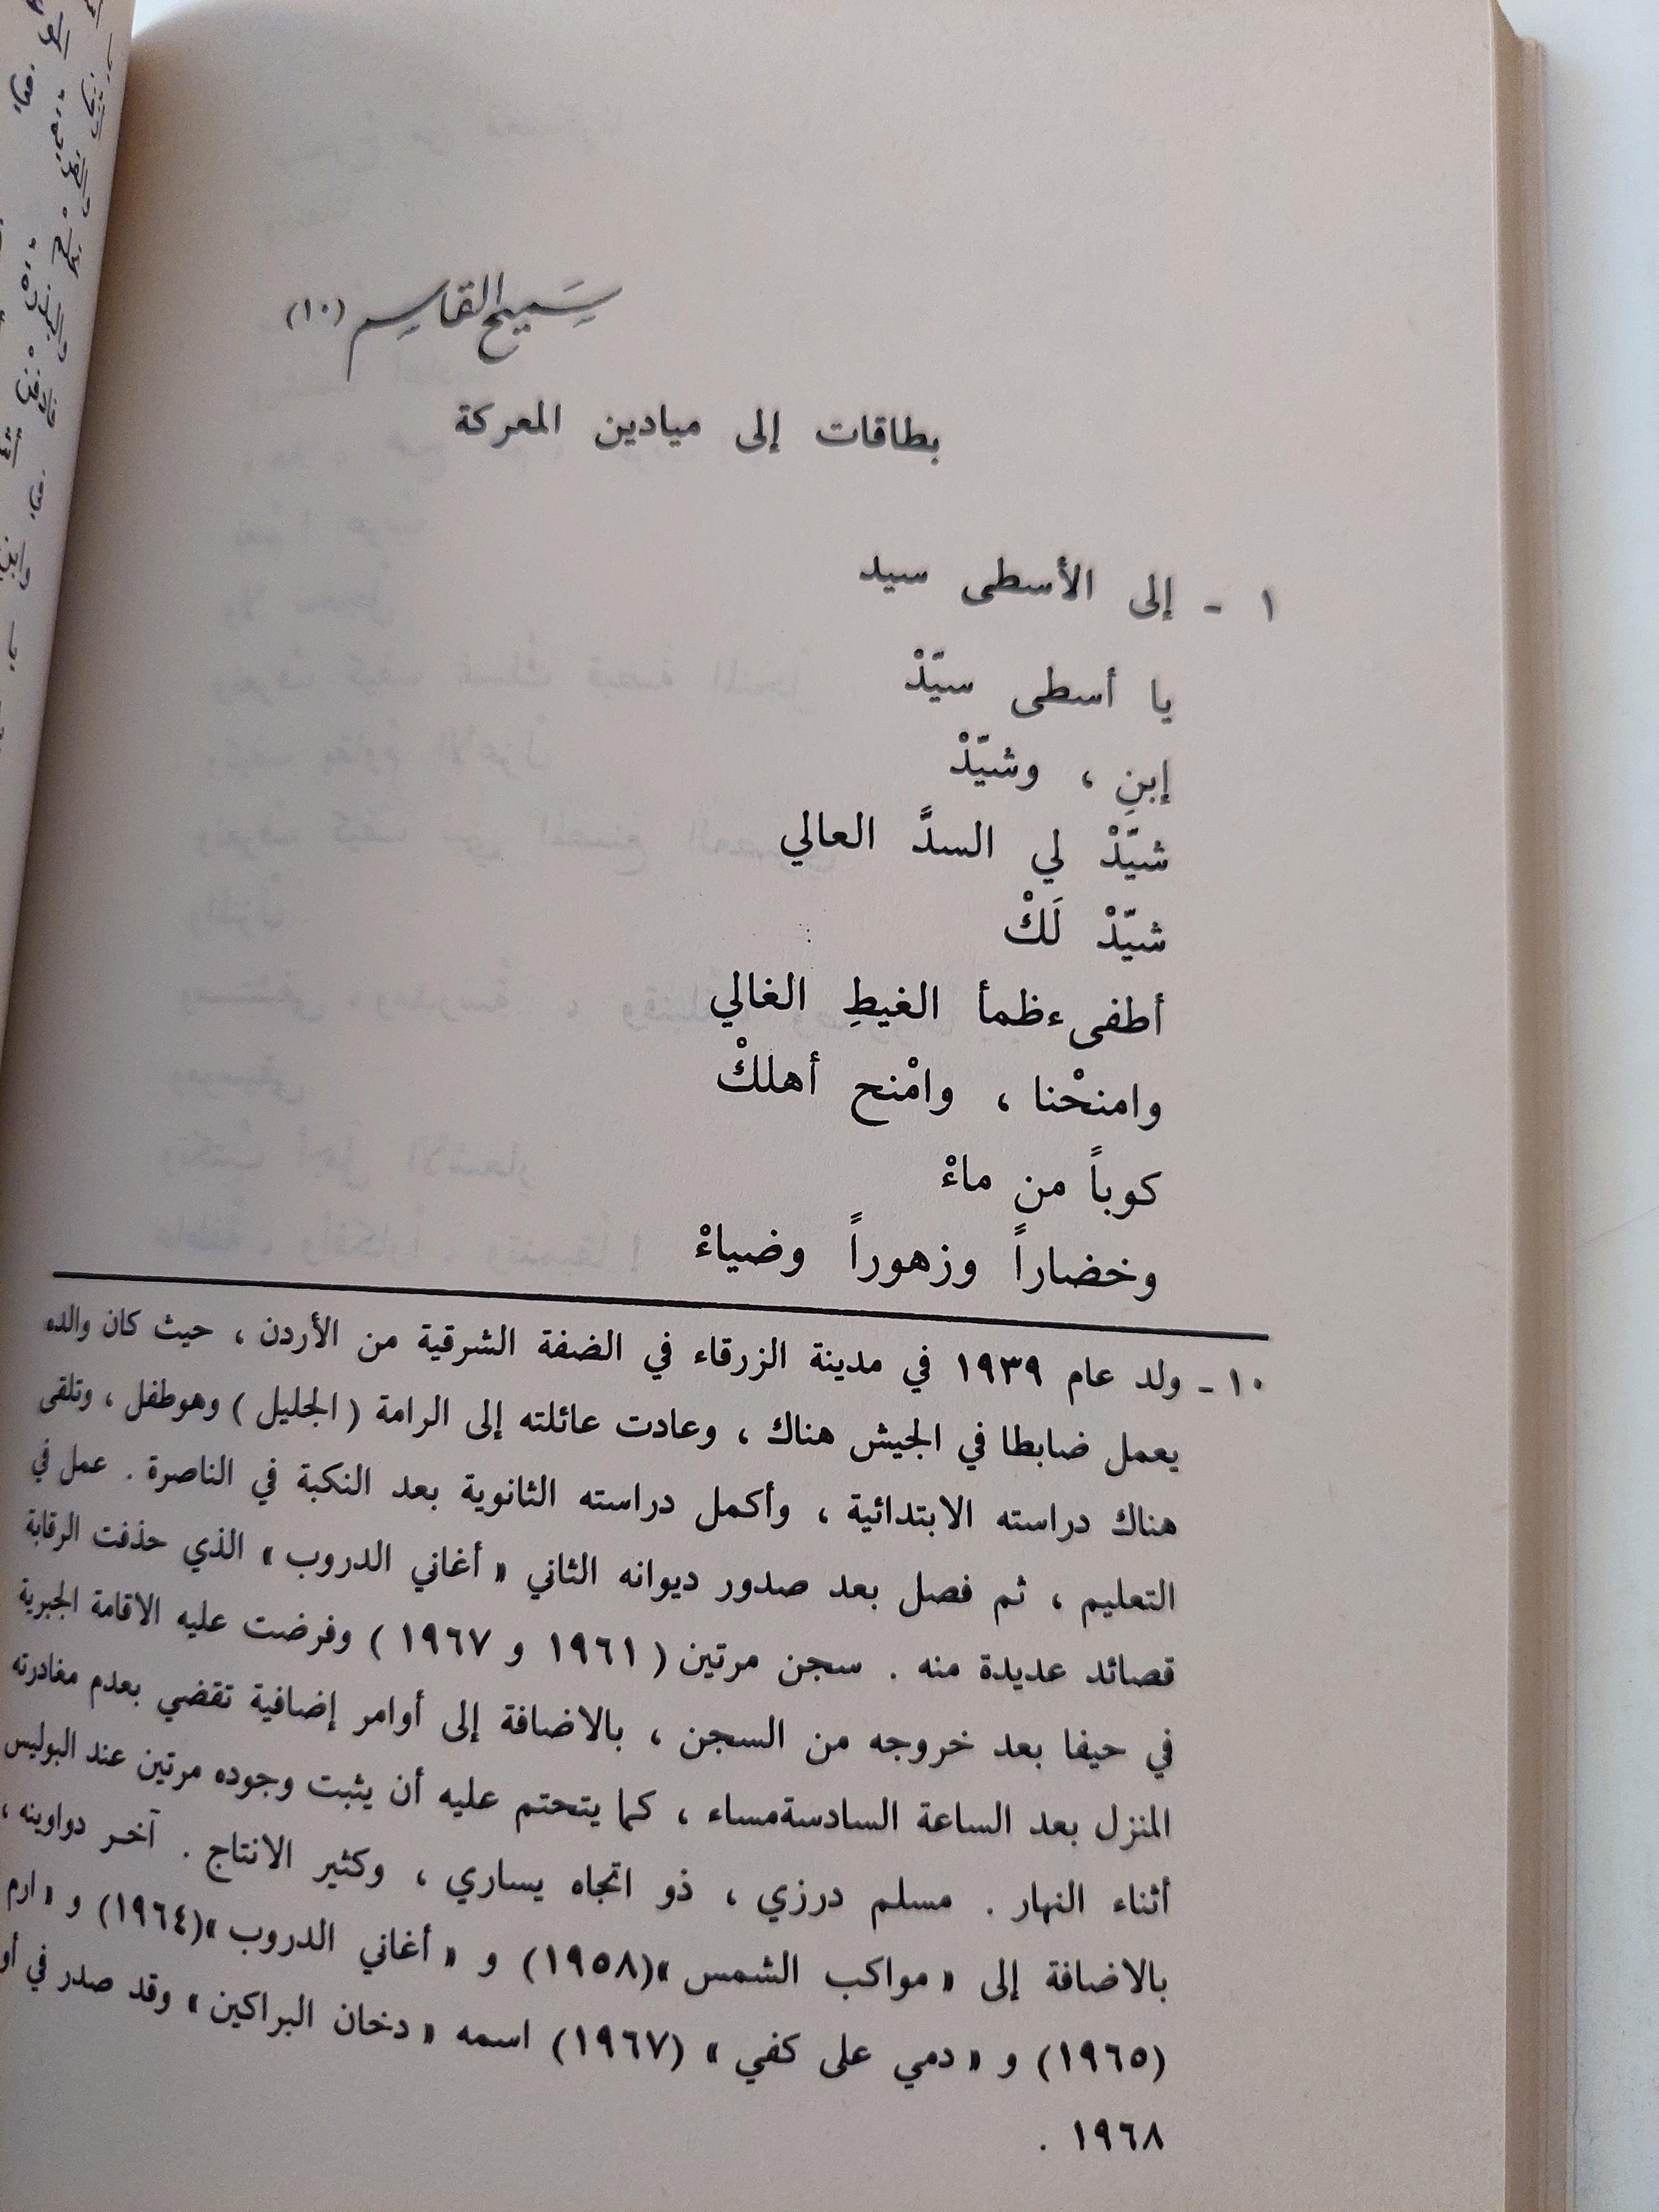 سَميح القاسِم (١٠)
بطاقات إلى ميادين المعركة
١ - إلى الأسطى سيد
يا أسطى سيّدْ
إبنِ ، وشيّدْ
شيّدْ لي السدَّ العالي
شيّدْ لَكْ
أطفىء ظمأ الغيطِ الغالي
وامنحْنا ، وامْنح أهلكْ
كوباً من ماءْ
وخضاراً وزهوراً وضياءْ
١٠ - ولد عام ١٩٣٩ في مدينة الزرقاء في الضفة الشرقية من الأردن ، حيث كان والده
يعمل ضابطا في الجيش هناك ، وعادت عائلته إلى الرامة ( الجليل ) وهو طفل ، وتلقى
هناك دراسته الابتدائية ، وأكمل دراسته الثانوية بعد النكبة في الناصرة . عمل في
التعليم ، ثم فصل بعد صدور ديوانه الثاني « أغاني الدروب » الذي حذفت الرقابة
قصائد عديدة منه . سجن مرتين ( ١٩٦١ و ١٩٦٧ ) وفرضت عليه الاقامة الجبرية
في حيفا بعد خروجه من السجن ، بالاضافة إلى أوامر إضافية تقضي بعدم مغادرته
المنزل بعد الساعة السادسة مساء ، كما يتحتم عليه أن يثبت وجوده مرتين عند البوليس
أثناء النهار . مسلم درزي ، ذو اتجاه يساري ، وكثير الانتاج . آخر دواوينه ،
بالاضافة إلى « مواكب الشمس »(١٩٥٨) و « أغاني الدروب »(١٩٦٤) و « ارم
(١٩٦٥) و « دمي على كفي » (١٩٦٧) اسمه « دخان البراكين » وقد صدر في أو
١٩٦٨ .